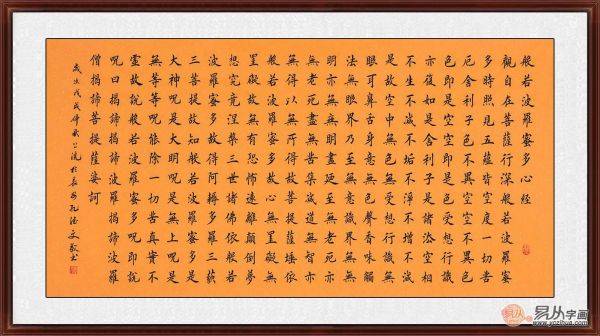 般若波羅蜜多心經
觀自在菩薩行深般若波羅蜜
多時照見五蘊皆空度一切苦
厄舍利子色不異空空不異色
色即是空空即是色受想行識
亦復如是舍利子是諸法空相
不生不滅不垢不淨不增不減
是故空中無色無受想行識無
眼耳鼻舌身意無色聲香味觸
法無眼界乃至無意識界無無
明亦無無明盡乃至無老死亦
無老死盡無苦集滅道無智亦
無得以無所得故菩提薩埵依
般若波羅蜜多故心無罣礙無
罣礙故無有恐怖遠離顛倒夢
想究竟涅槃三世諸佛依般若
波羅蜜多故得阿耨多羅三藐
三菩提故知般若波羅蜜多是
大神呪是大明呪是無上呪是
無等等呪能除一切苦真實不
虛故說般若波羅蜜多呪即說
呪曰揭諦揭諦波羅揭諦波羅
僧揭諦菩提薩婆訶
歲次戊戌年 孔德文敬書
易从字画
www.yczihua.com